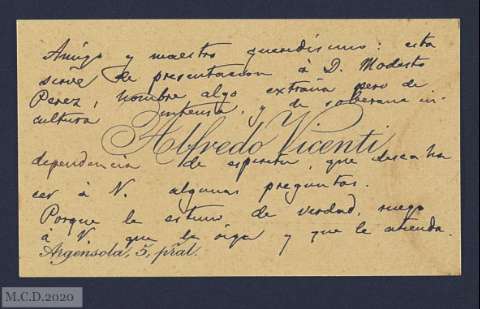 Amigo y maestro queridísimo: esta
sirve de presentacion á D. Modesto
Perez, hombre algo extraño pero de
cultura intensa, y de soberana in-
Alfredo Vicenti
dependencia de espíritu, que desea ha
cer á V. algunas preguntas.
Porque le estimo de verdad, ruego
á V. que le oiga y que le atienda.
Argensola, 5, pral.
M.C.D.2020